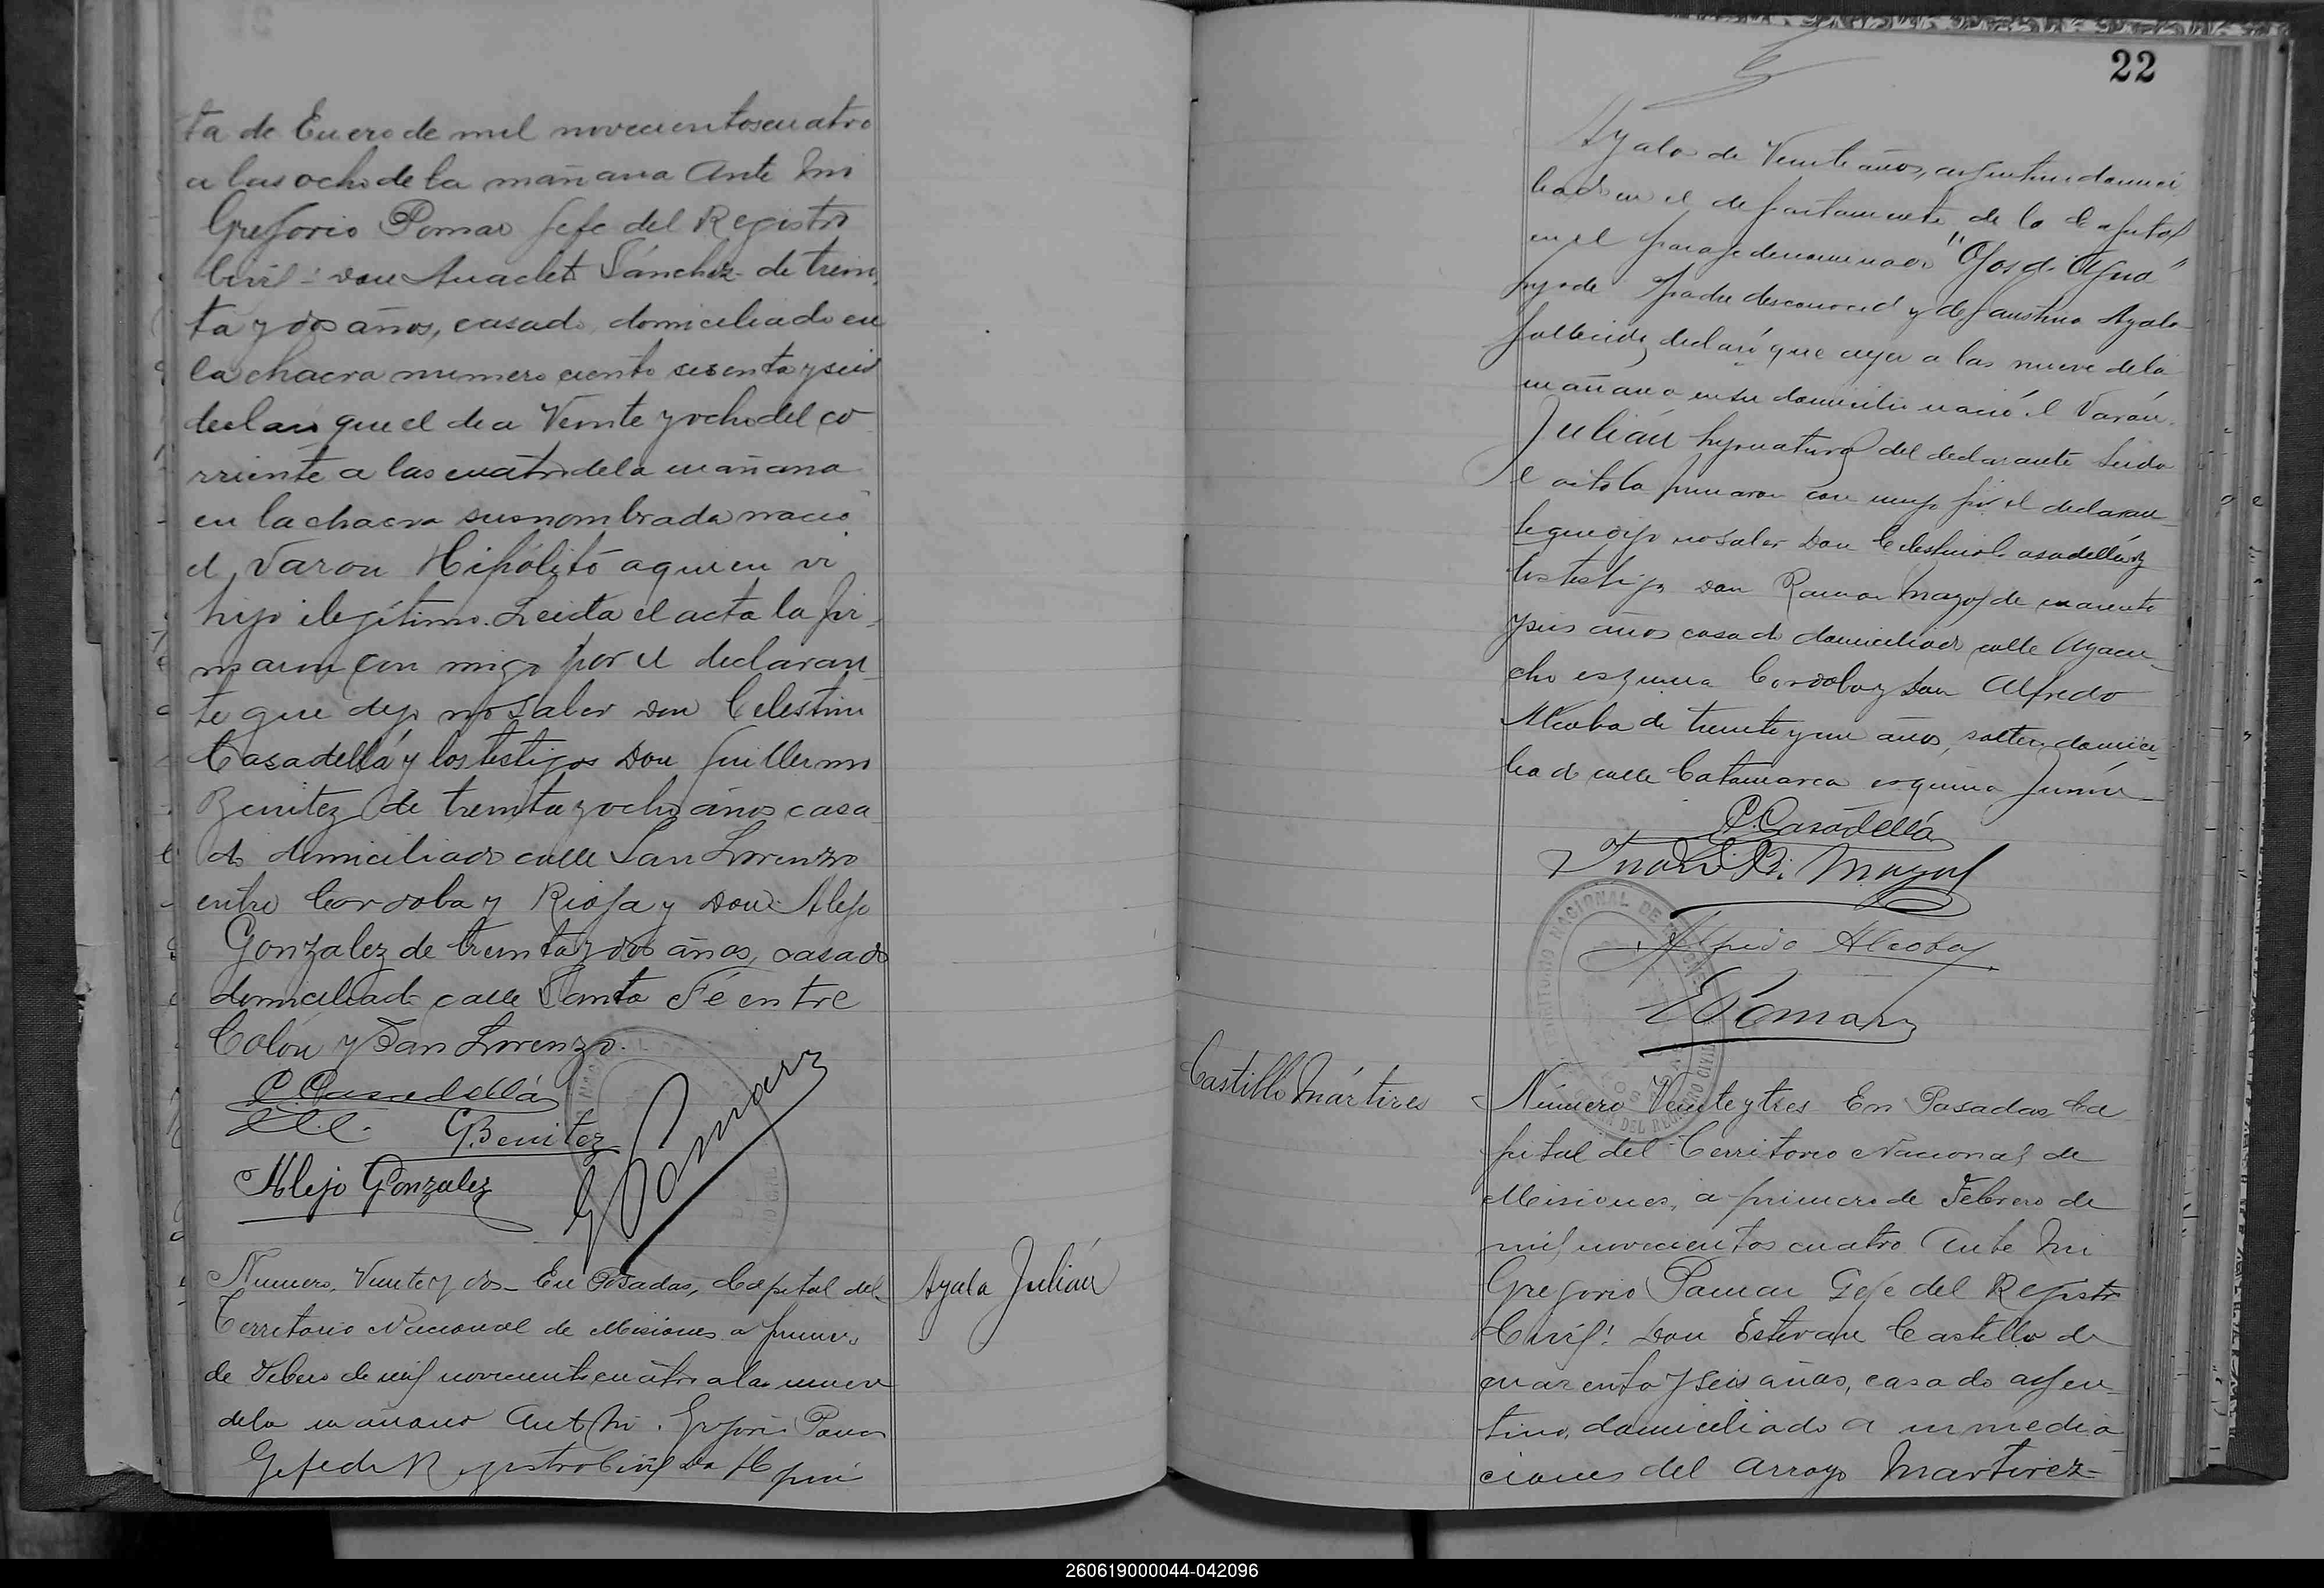 ta de Enero de mil novecientos cuatro
a las ocho de la mañana Ante Mi
Gregorio Pomar Gefe del Registro
Civil: Don Anacleto Sánchez de trein
ta y dos años, casado, domiciliado en
la chacra numero ciento sesenta y seis
declaró que el dia Veinte y ocho del co
rriente a las cuatro de la mañana
en la chacra susnombrada nació
el Varon Hipólito a quien vi
hijo ilegítimo. Leida el acta la fir
maron con migo por el declaran
te que dijo no saber Don Celestino
Casadellá y los testigos Don Guillermo
Benitez de treinta y ocho años casa
do domiciliado calle San Lorenzo
entre Cordoba y Rioja y Don Alejo
Gonzalez de treinta y dos años, casado
domiciliado calle Santa Fé entre
Colón y San Lorenzo.
C. Casadellá
G. Benitez
Alejo Gonzalez
G Pomar
Ayala Julián
Numero, Veinte y dos - En Posadas, Capital del
Territorio Nacional de Misiones a primero
de Febrero de mil novecientos cuatro a las nueve
de la mañana Ante Mi. Gregorio Pomar
Gefe del Registro Civil Don
22
Ayala de Veinte años, argentino domici
liado en el departamento de la Capital
en el paraje denominado "Ojos de Agua"
hijo de padre desconocido y de Faustina Ayala
fallecida, declaró que ayer a las nueve de la
mañana en su domicilio nació el Varón
Julián hijo natural del declarante Leida
el acta la firmaron con migo por el declaran
te que dijo no saber Don Celestino Casadellá y
los testigos Don Ramon Mayol de cuarenta
y seis años casado domiciliado calle Ayacu
cho esquina Cordoba y Don Alfredo
Alcoba de treinta y un años, soltero, domici
liado calle Catamarca esquina Junín
C. Casadellá
R. Mayol
Alfredo Alcoba
G Pomar
TERRITORIO NACIONAL DE MISIONES
Castillo Mártires
Número Veinte y tres En Posadas Ca
pital del Territorio Nacional de
Misiones, a primero de Febrero de
mil novecientos cuatro Ante Mi
Gregorio Pomar Gefe del Registro
Civil: Don Estevan Castillo de
cuarenta y seis años, casado argen
tino, domiciliado a inmedia
ciones del Arroyo Martirez
260619000044-042096